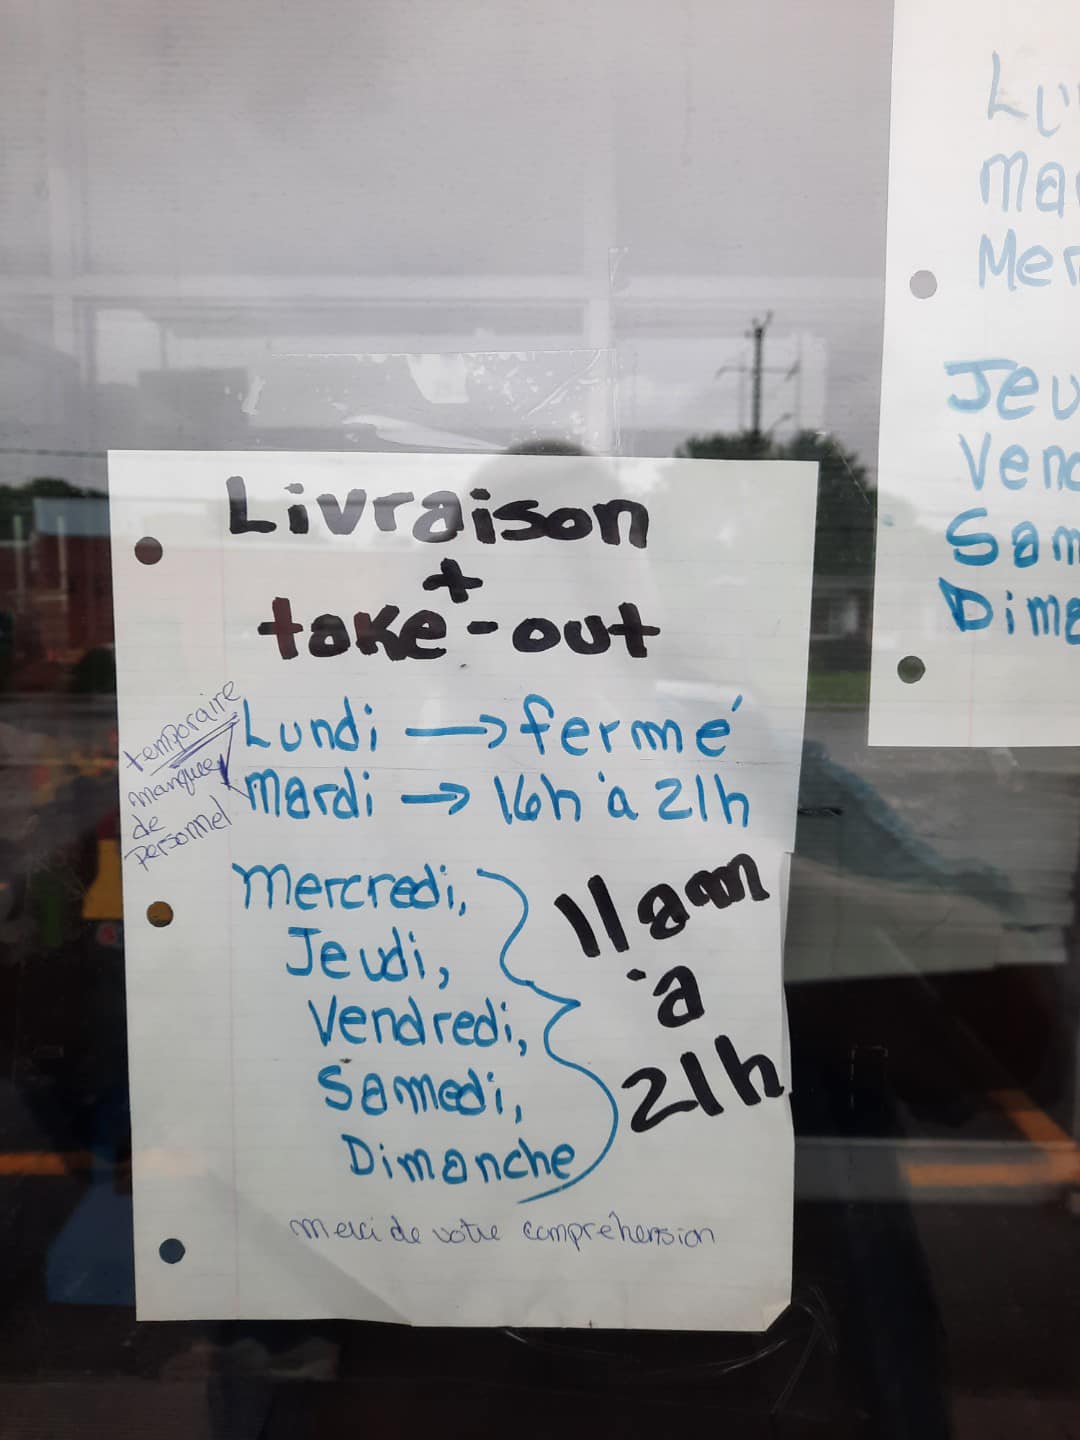 Livraison
+
take-out
temporaire
manque
de
personnel
Lundi → fermé
Mardi → 16h à 21h
Mercredi,
Jeudi,
Vendredi,
Samedi,
Dimanche
11 am
à
21h
Merci de votre compréhension
Lu
Mar
Mer
Jeu
Vend
Sam
Dima